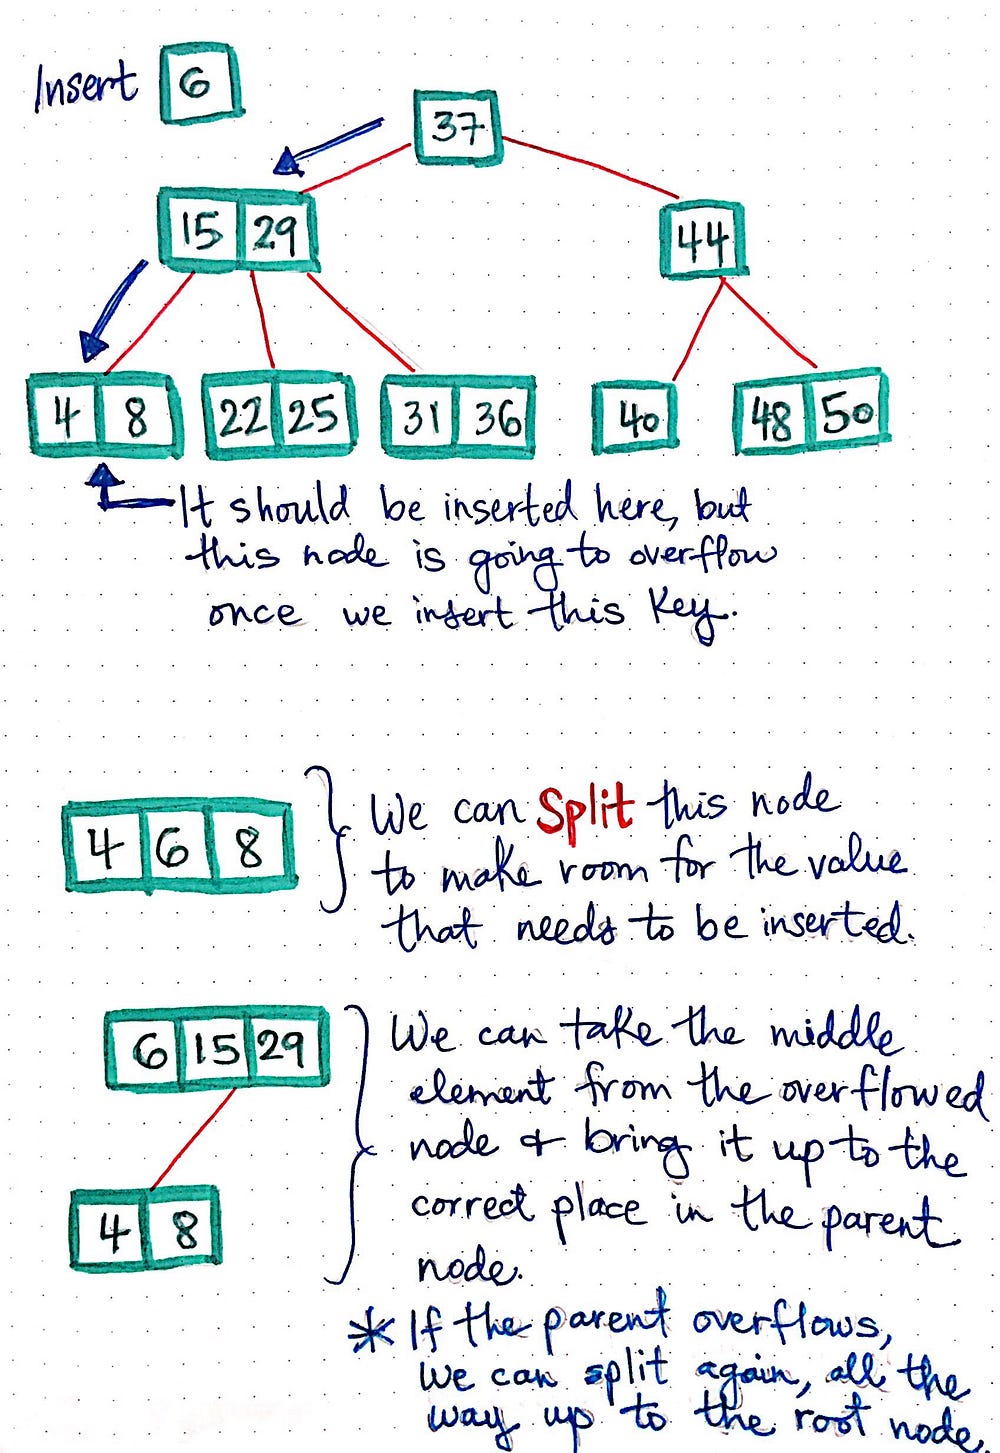 Insert 6
37
15 29
44
4 8
22 25
31 36
40
48 50
It should be inserted here, but
this node is going to overflow
once we insert this key.
4 6 8
We can Split this node
to make room for the value
that needs to be inserted.
6 15 29
4 8
We can take the middle
element from the overflowed
node & bring it up to the
correct place in the parent
node.
* If the parent overflows,
we can split again, all the
way up to the root node.